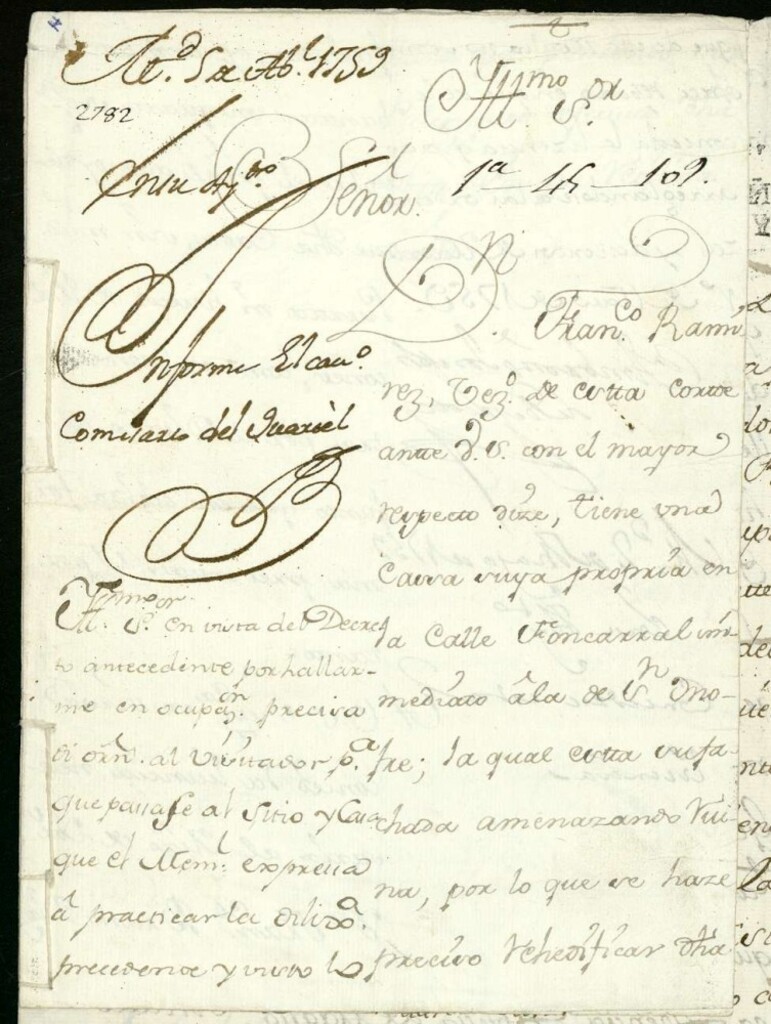 Md. 5 de Abl. 1759
2782
En su Ayto.
Informe El cavo.
Comisario del Quartèl
Yllmo Sor
1a - 45 - 109.
Señor.
Dn
Franco. Rami
rez, Vezo. de esta Corte
ante V. S. con el mayor
respecto dize, tiene una
Cassa suya propria en
la Calle Foncarral in-
mediato â la de Sn Ono-
fre; la qual esta su fa-
chada amenazando Rui-
na, por lo que se haze
preciso Rhedificar dha
Yllmo Sor. en vista del Decre
to antecedente por hallar-
me en ocupazon. precisa
di orn. al Visitador pa.
que passase al sitio y Casa
que el Meml. expressa
â practicar la diliza.
precedente y visto lo